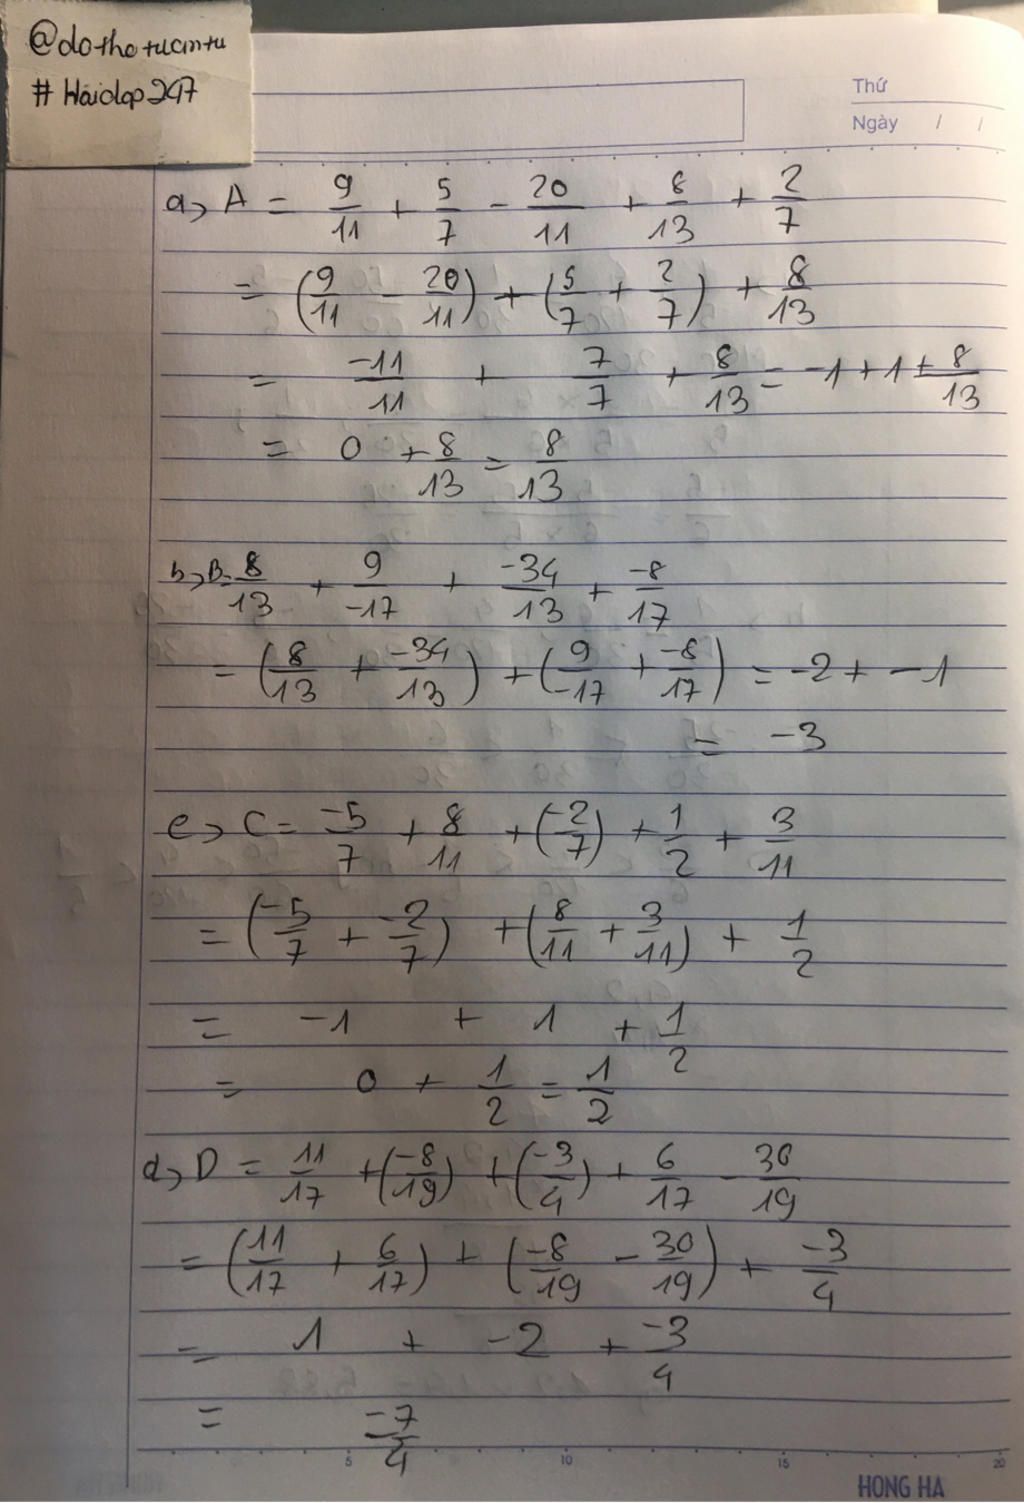 @dothetucmtu
# Hoidap247
Thứ
Ngày / /
a, A = 9/11 + 5/7 - 20/11 + 8/13 + 2/7
= (9/11 - 20/11) + (5/7 + 2/7) + 8/13
= -11/11 + 7/7 + 8/13 = -1 + 1 + 8/13
= 0 + 8/13 = 8/13
b, B = 8/13 + 9/-17 + -34/13 + -8/17
= (8/13 + -34/13) + (9/-17 + -8/17) = -2 + -1
= -3
c, C = -5/7 + 8/11 + (-2/7) + 1/2 + 3/11
= (-5/7 + -2/7) + (8/11 + 3/11) + 1/2
= -1 + 1 + 1/2
= 0 + 1/2 = 1/2
d, D = 11/17 + (-8/19) + (-3/4) + 6/17 - 30/19
= (11/17 + 6/17) + (-8/19 - 30/19) + -3/4
= 1 + -2 + -3/4
= -7/4
5 10 15 20
HONG HA